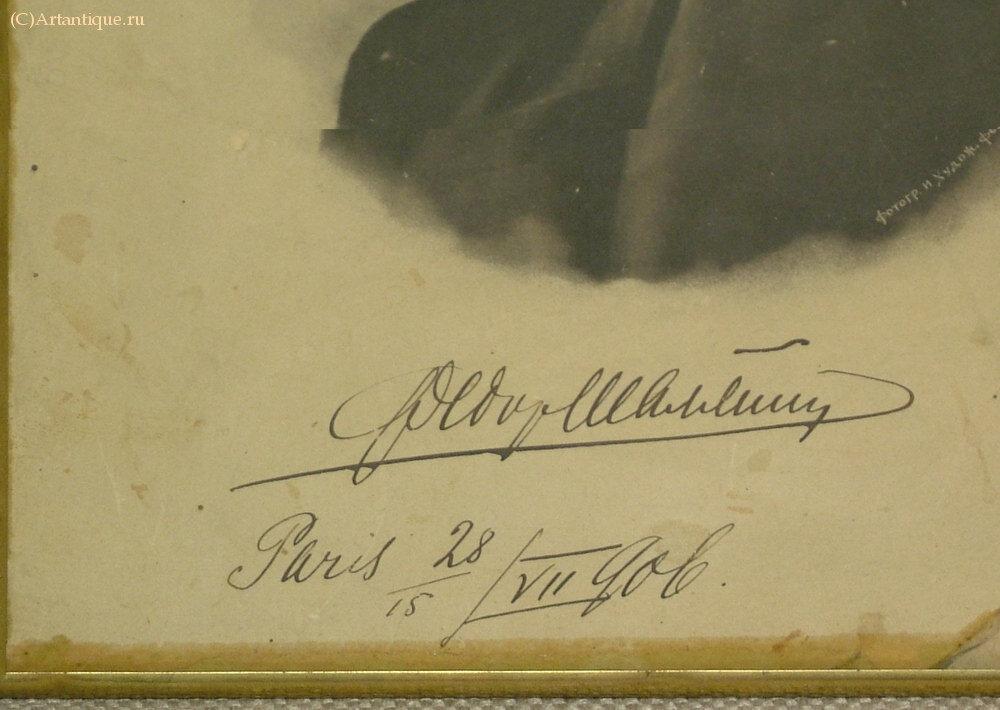 (C)Artantique.ru
Фотогр. и худож. фа
Федор Шаляпин
Paris 28/15 /VII 906.